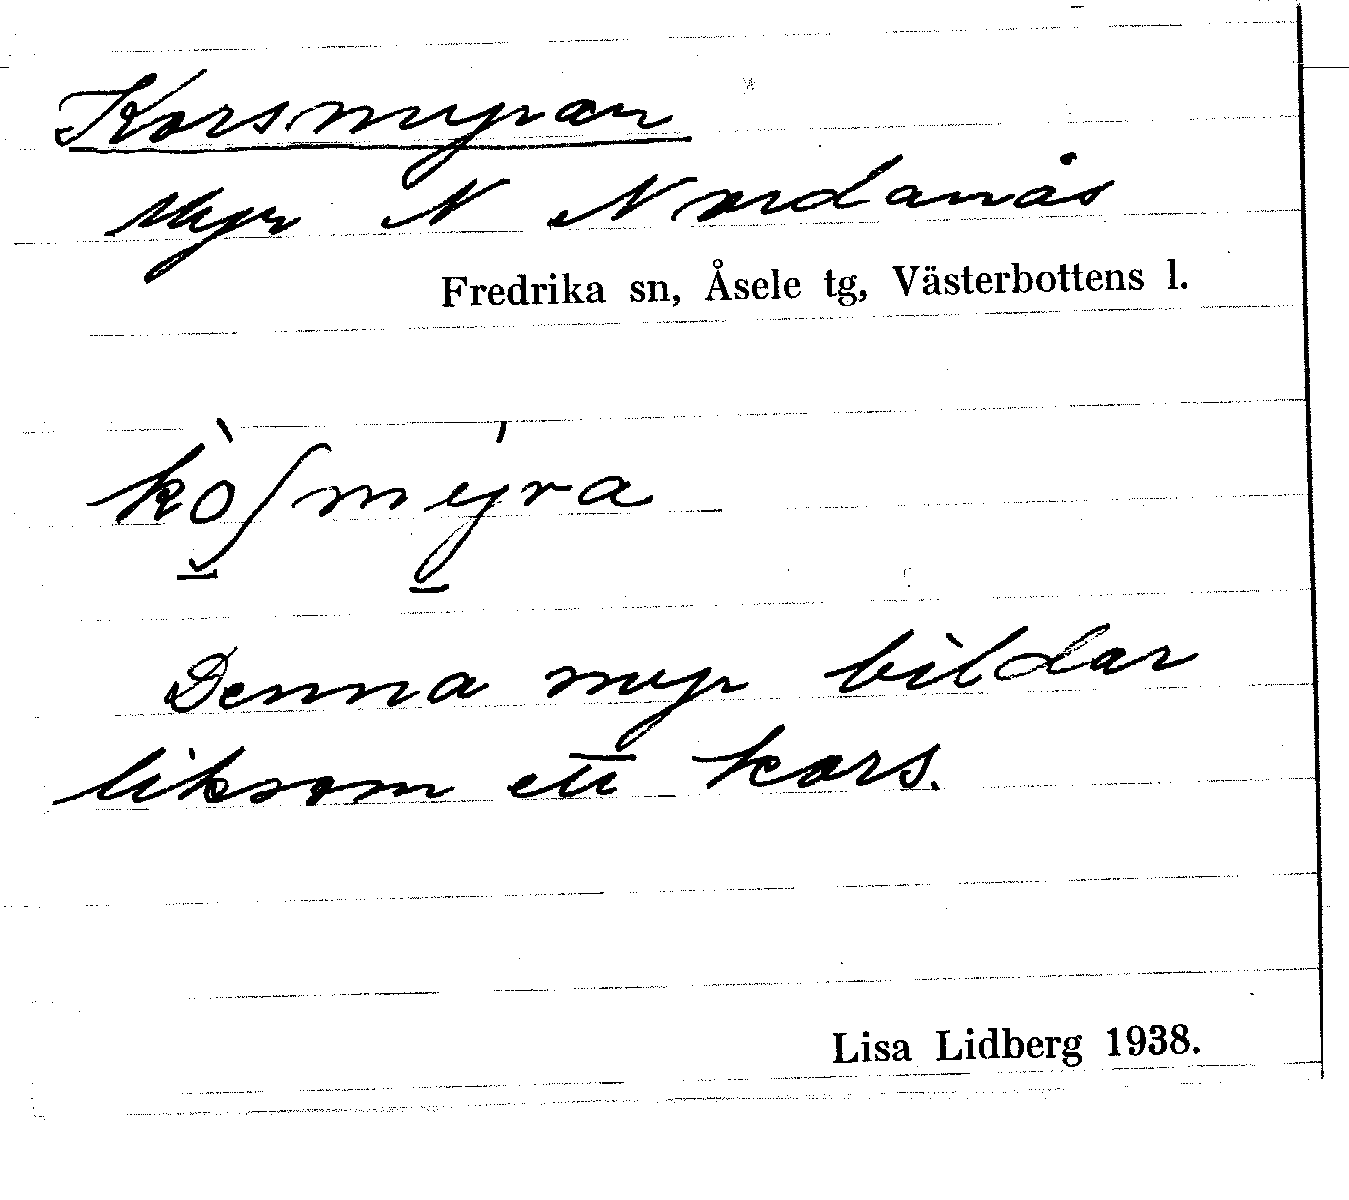 Korsmyran
Myr N Nordanås
Fredrika sn, Åsele tg, Västerbottens l.
kò̱ʃmý̱ra
Denna myr bildar
liksom ett kors.
Lisa Lidberg 1938.